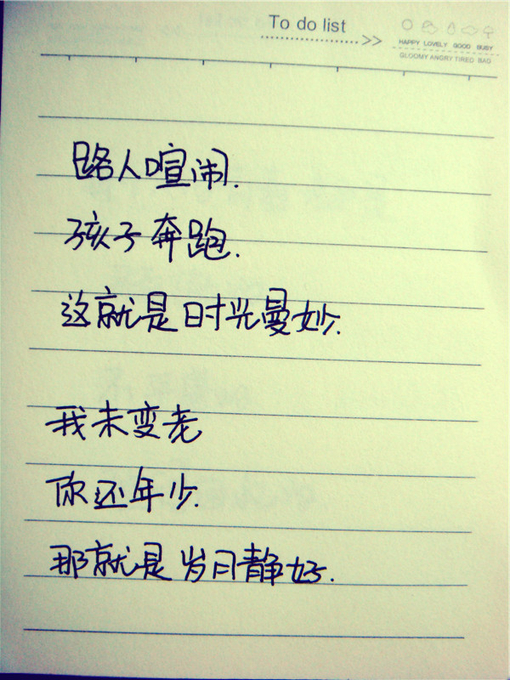 To do list
>>
HAPPY LOVELY GOOD BUSY
GLOOMY ANGRY TIRED BAD
路人喧闹.
孩子奔跑.
这就是时光曼妙.
我未变老
你还年少.
那就是岁月静好.